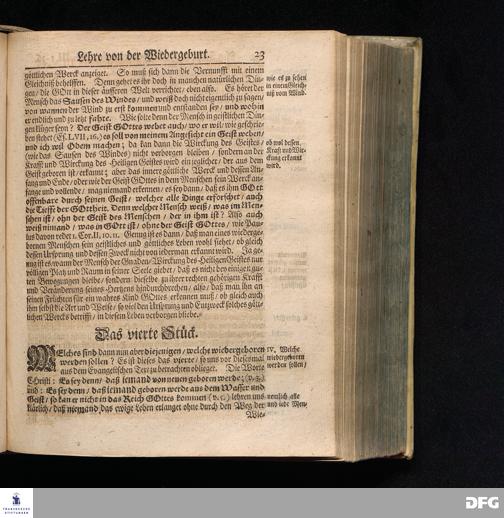 Lehre von der Wiedergeburt. 23
göttlichen Werck anzeiget. So muß sich dann die Vernunfft mit einem
Gleichniß behelffen. Denn gehet es ihr doch in manchen natürlichen Din-
gen / die GOtt in dieser äusseren Welt verrichtet / eben also. Es höret der
Mensch das Sausen des Windes / und weiß doch nicht eigentlich zu sagen /
von wannen der Wind zu erst kommen und entstanden sey / und wohin
er endlich und zu lezt fahre. Wie solte denn der Mensch in geistlichen Din-
gen klüger seyn? Der Geist GOttes webet auch / wo er wil / wie geschrie-
ben stehet (Es. LVII, 16.) es soll von meinem Angesicht ein Geist weben /
und ich wil Odem machen; da kan dann die Würckung des Geistes /
(wie das Sausen des Windes) nicht verborgen bleiben / sondern an der
Krafft und Würckung des Heiligen Geistes wird ein jeglicher / der aus dem
Geist geboren ist / erkannt; aber das innere göttliche Werck und dessen An-
fang und Ende / oder wie der Geist GOttes in dem Menschen sein Werck an-
fange und vollende / mag niemand erkennen / es sey dann / daß es ihm GOtt
offenbare durch seinen Geist / welcher alle Dinge erforschet / auch
die Tieffe der GOttheit. Denn welcher Mensch weiß / was im Men-
schen ist / ohn der Geist des Menschen / der in ihm ist? Also auch
weiß niemand / was in GOtt ist / ohne der Geist GOttes / wie Pau-
lus davon redet 1. Cor. II, 10. 11. Genug ist es dann / daß man eines wiederge-
bornen Menschen sein geistliches und göttliches Leben wohl siehet / ob gleich
dessen Ursprung und dessen Zweck nicht von jederman erkannt wird. Ja ge-
nug ist es / wann der Mensch der Gnaden-Würckung des Heiligen Geistes nur
völligen Platz und Raum in seiner Seele giebet / daß es nicht bey einigen gu-
ten Bewegungen bleibe / sondern dieselbe zu ihrer rechten gehörigen Krafft
und Veränderung seines Hertzens hindurchbrechen / also / daß man ihn an
seinen Früchten für ein wahres Kind GOttes erkennen muß / ob gleich auch
ihm selbst die Art und Weise / so viel den Ursprung und Endzweck solches gött-
lichen Wercks betrifft / in diesem Leben verborgen bliebe.
wie es zu sehen
in einem Gleich-
niß vom Wind.
ob wol dessen
Krafft und Wür-
ckung erkannt
wird.
Das vierte Stück.
WElches sind dann nun aber diejenigen / welche wiedergeboren
werden sollen? Es ist dieses das vierte / so uns vor diesesmal
aus dem Evangelischen Text zu betrachten oblieget. Die Worte
Christi: Es sey denn / daß iemand von neuen geboren werde; (v. 3.)
und: Es sey denn / daß iemand geboren werde aus dem Wasser und
Geist / so kan er nicht in das Reich GOttes kommen (v. 5.) lehren uns
klärlich / daß niemand das ewige Leben erlanget ohne durch den Weg der
Wie-
IV. Welche
wiedergeboren
werden sollen /
nemlich alle
und iede Men-
DFG